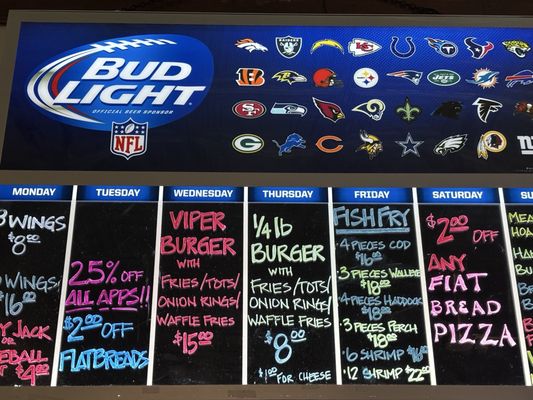 BUD
LIGHT
OFFICIAL BEER SPONSOR
NFL
JETS
NY
MONDAY
WINGS
$8.00
WINGS
$16.00
JACK
$4.00
TUESDAY
25% OFF
ALL APPS!!
$2.00 OFF
FLATBREADS
WEDNESDAY
VIPER
BURGER
WITH
FRIES/TOTS/
ONION RINGS/
WAFFLE FRIES
$15.00
THURSDAY
1/4 lb
BURGER
WITH
FRIES/TOTS/
ONION RINGS/
WAFFLE FRIES
$8.00
$1.00 FOR CHEESE
FRIDAY
FISH FRY
4 PIECES COD
$16.00
3 PIECES WALLEYE
$18.00
4 PIECES HADDOCK
$18.00
3 PIECES PERCH
$18.00
6 SHRIMP $16.00
12 SHRIMP $22.00
SATURDAY
$2.00 OFF
ANY
FLAT
BREAD
PIZZA